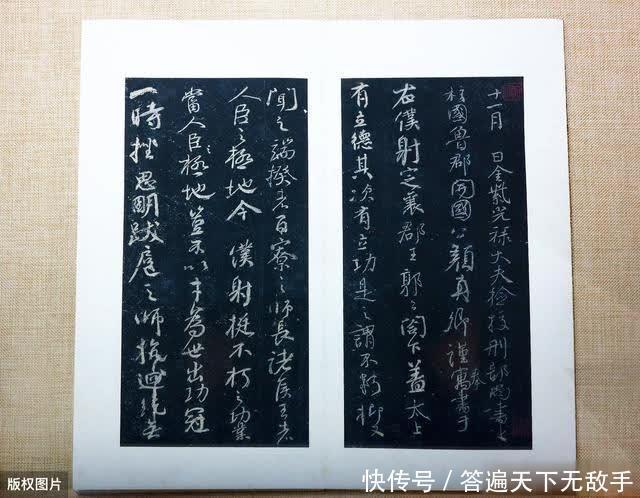 十一月 日金紫光禄大夫检校刑部尚书上
柱國魯郡開國公顏真卿謹奉寓書于
右僕射定襄郡王郭公閤下蓋太上
有立德其次有立功是之謂不朽抑又
聞之端揆者百寮之師長諸侯王者
人臣之極地今僕射挺不朽之功業
當人臣極地豈不以才為世出功冠
一時挫思明跋扈之師抗迴紇無
版权图片
快传号/答遍天下无敌手